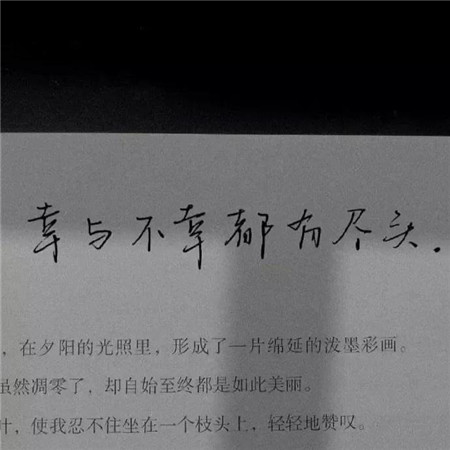 幸与不幸都有尽头.
，在夕阳的光照里，形成了一片绵延的泼墨彩画。
虽然凋零了，却自始至终都是如此美丽。
叶，使我忍不住坐在一个枝头上，轻轻地赞叹。